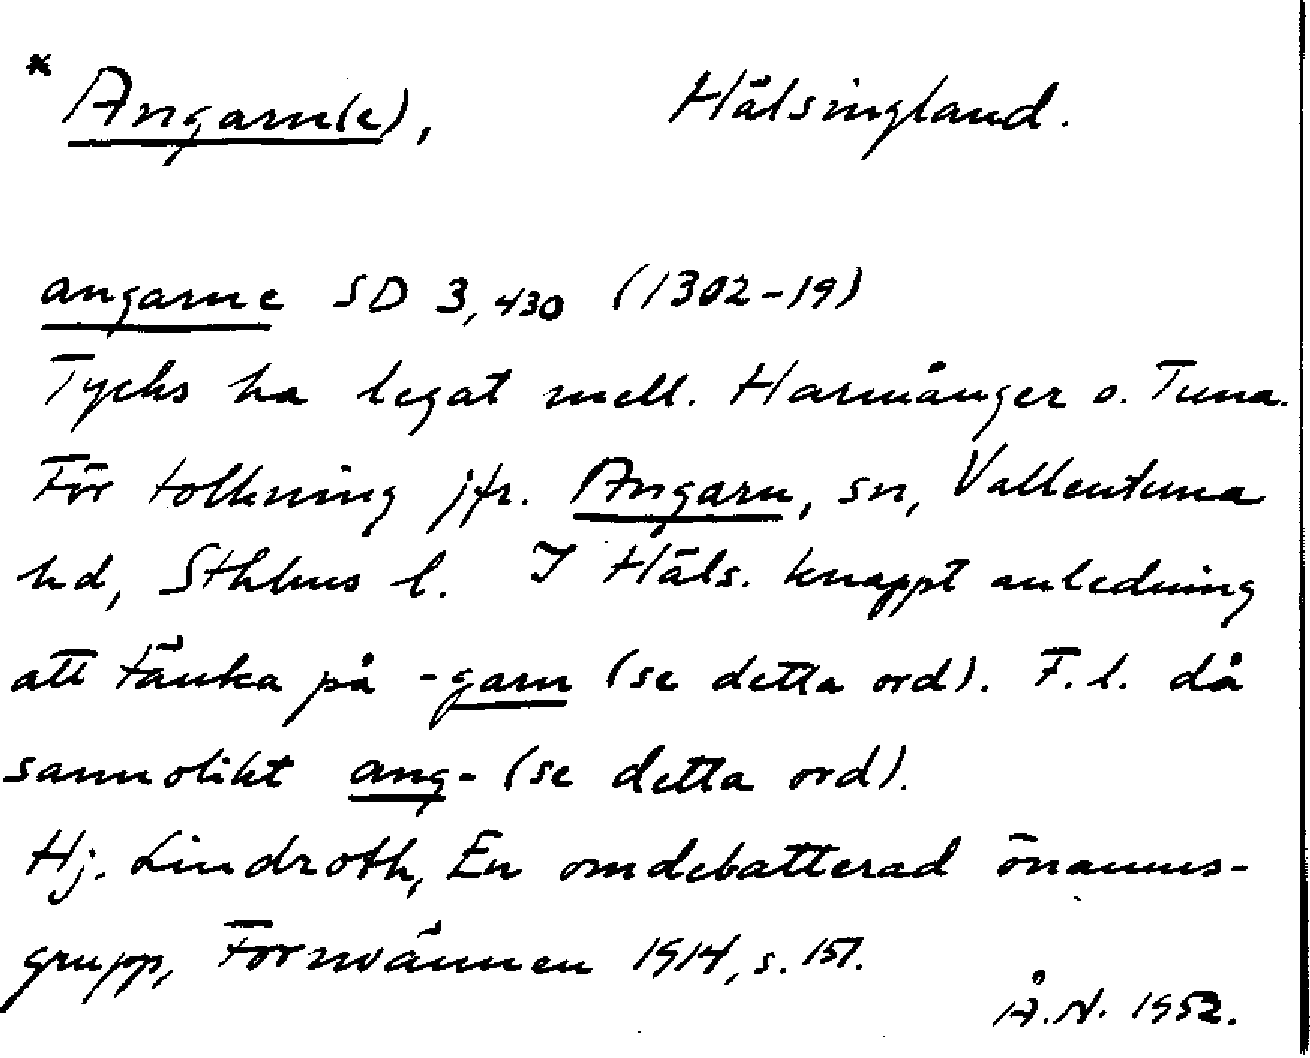 * Angarn(e), Hälsingland.
angarne SD 3, 430 (1302-19)
Tycks ha legat mell. Harmånger o. Tuna.
För tolkning jfr. Angarn, sn, Vallentuna
hd, Sthlms l. I Häls. knappt anledning
att tänka på -garn (se detta ord). F.l. då
sannolikt ang- (se detta ord).
Hj. Lindroth, En omdebatterad önamns-
grupp, Fornvännen 1914, s. 157.
Å.N. 1952.